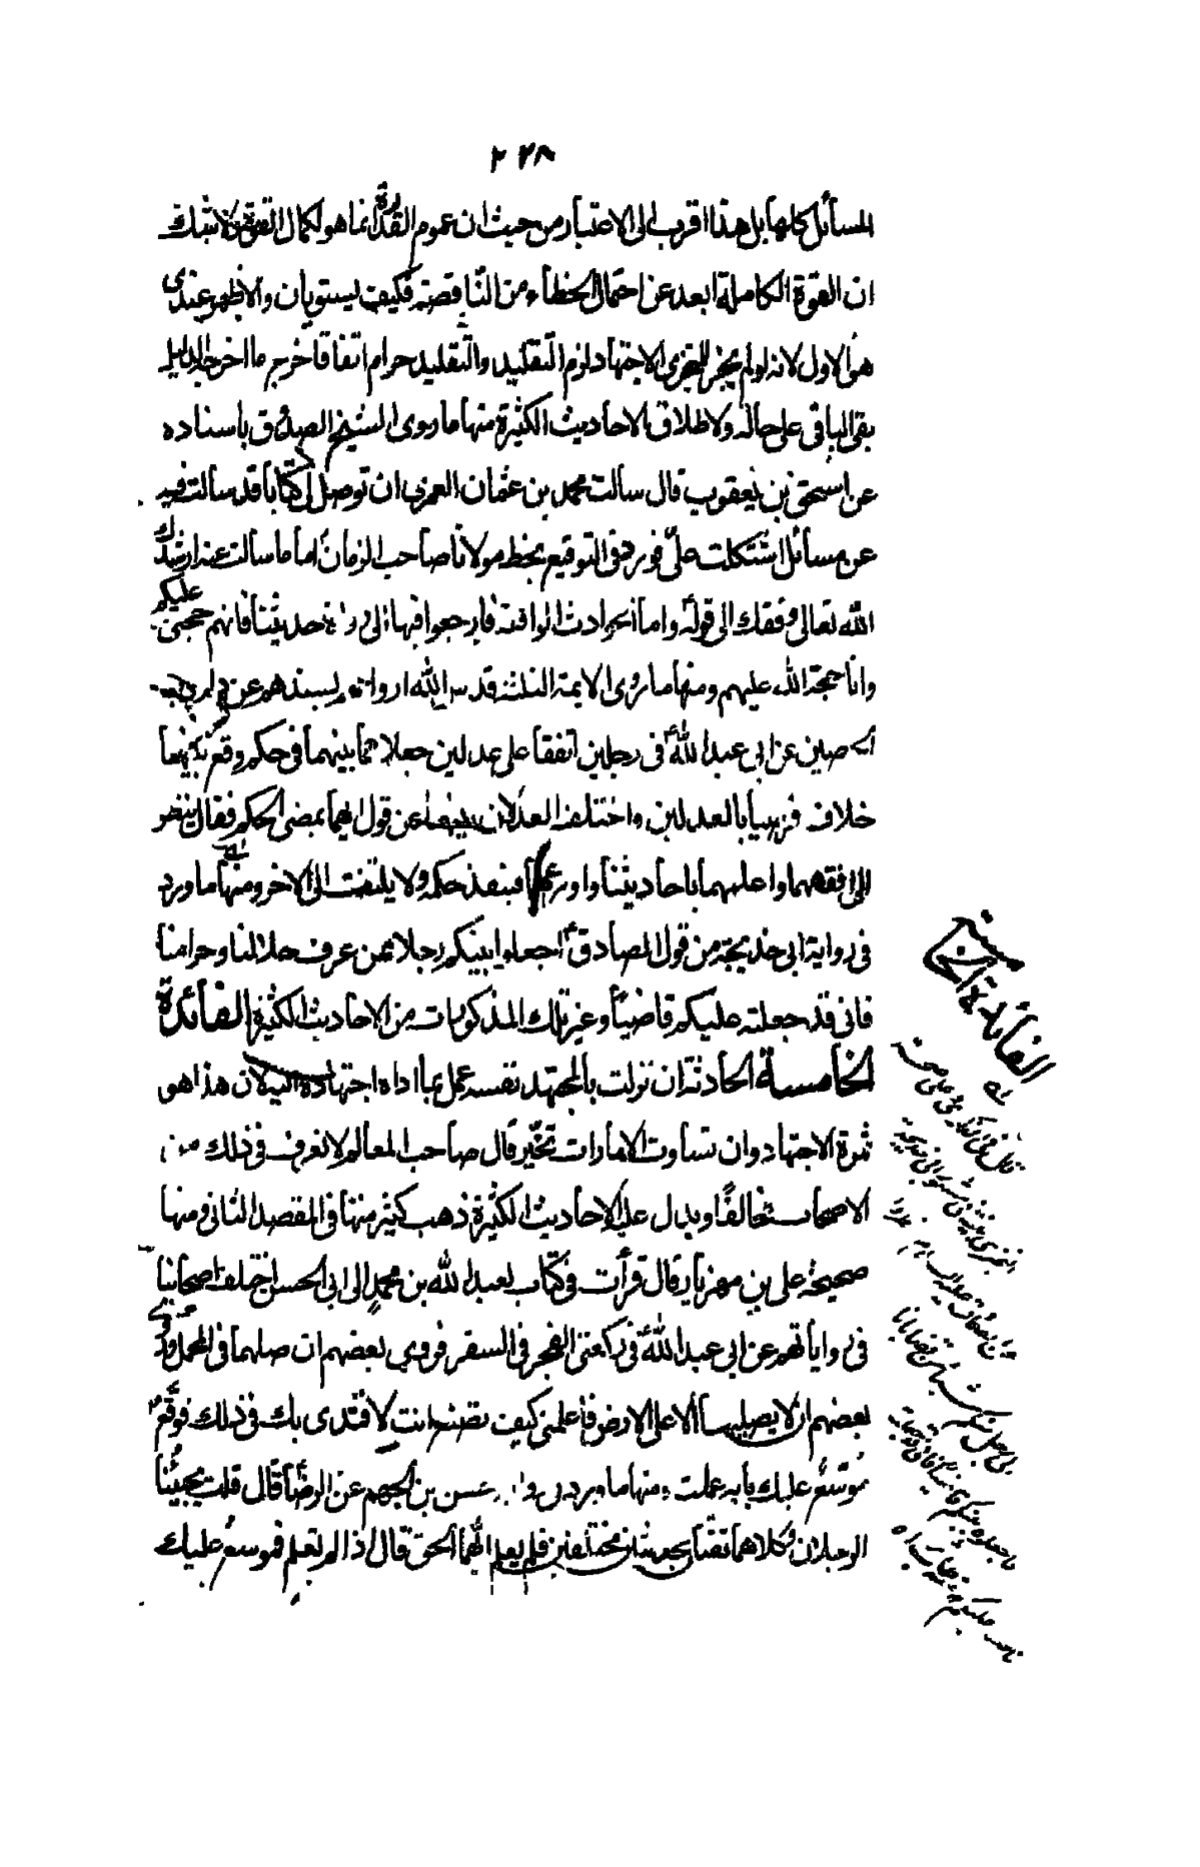 ٢٢٨
المسائل كلها بل هذا اقرب الى الاعتبار من حيث ان عموم القدرة انما هو لكمال القوة ولا شك
ان القوة الكاملة ابعد عن احتمال الخطاء من الناقصة فكيف يستويان والاظهر عندى
هو الاول لانه لو لم يجز للمتجزى الاجتهاد لزم التقليد والتقليد حرام اتفاقا خرج ما اخرجه الدليل
بقى الباقى على حاله ولاطلاق الاحاديث الكثيرة منها ما روى الشيخ الصدوق باسناده
عن اسحق بن يعقوب قال سالت محمد بن عثمان العمرى ان توصل لى كتابا قد سالت فيه
عن مسائل اشتكلت علىّ فورد فى التوقيع بخط مولانا صاحب الزمان اما ما سالت عنه ارشدك
الله تعالى وفقك الى قوله واما الحوادث الواقعة فارجعوا فيها الى رواة حديثنا فانهم حجتى عليكم
وانا حجة الله عليهم ومنها ما روى الايمة الثلثة قدس الله ارواحهم بسندهم عن داود بن
الحصين عن ابى عبد الله ع فى رجلين اتفقا على عدلين جعلاهما بينهما فى حكم وقع بينهما
خلاف فرضيا بالعدلين واختلف العدلان بينهما عن قول ايهما يمضى الحكم فقال ينظر
الى افقههما واعلمهما باحاديثنا واورعهما فينفذ حكمه ولا يلتفت الى الاخر ومنها ما ورد
فى رواية ابى خديجة من قول الصادق ع اجعلوا بينكم رجلا ممن عرف حلالنا وحرامنا
فانى قد جعلته عليكم قاضيًا وغير تلك المذكورات من الاحاديث الكثيرة الفائدة
الخامسة الحادثة ان نزلت بالمجتهد نفسه عمل بما اداه اجتهاده اليه لان هذا هو
ثمرة الاجتهاد وان تساوت الامارات تخيّر قال صاحب المعالم لا نعرف فى ذلك من
الاصحاب مخالفًا ويدل عليه الاحاديث الكثيرة ذهب كثير منها فى المقصد الثانى ومنها
صحيحة على بن مهزيار قال قرأت فى كتاب لعبد الله بن محمد الى ابى الحسن ع اختلف اصحابنا
فى رواياتهم عن ابى عبد الله ع فى ركعتى الفجر فى السفر فروى بعضهم ان صلهما فى المحمل وروى
بعضهم ان لا يصليهما الا على الارض فاعلمنى كيف تصنع انت لاقتدى بك فى ذلك فوقّع ع
مُوَسَّع عليك بأيه عملت ومنها ما ورد فى رواية حسن بن الجهم عن الرضا ع قال قلت يجيئنا
الرجلان وكلاهما ثقتان بحديثين مختلفين فلم يعلم ايهما الحق قال اذا لم تعلم فموسع عليك
الفائدة الخامسة